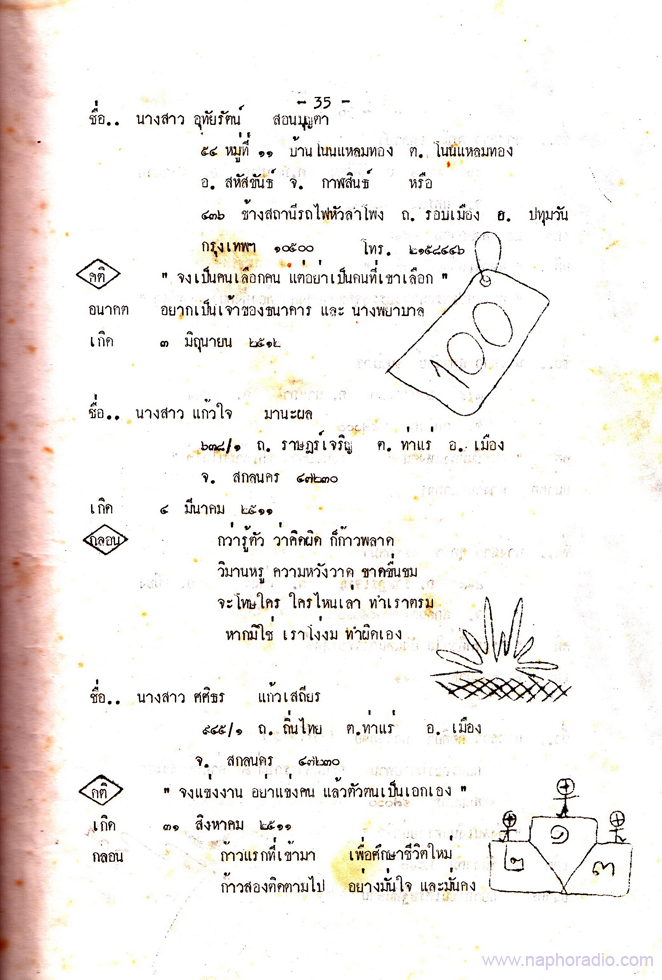 - 35 -
ชื่อ.. นางสาว อุทัยรัตน์ สอนบุญตา
๕๔ หมู่ที่ ๑๑ บ้านโนนแหลมทอง ต. โนนแหลมทอง
อ. สหัสขันธ์ จ. กาฬสินธ์ หรือ
๔๓๖ ข้างสถานีรถไฟหัวลำโพง ถ. รอบเมือง ข. ปทุมวัน
กรุงเทพฯ ๑๐๕๐๐ โทร. ๒๑๕๘๔๔๖
คติ " จงเป็นคนเลือกคน แต่อย่าเป็นคนที่เขาเลือก "
อนาคต อยากเป็นเจ้าของธนาคาร และ นางพยาบาล
เกิด ๓ มิถุนายน ๒๕๑๒
100
ชื่อ.. นางสาว แก้วใจ มานะผล
๖๓๘/๑ ถ. ราษฎร์เจริญ ต. ท่าแร่ อ. เมือง
จ. สกลนคร ๔๗๒๓๐
เกิด ๔ มีนาคม ๒๕๑๑
กลอน กว่ารู้ตัว ว่าคิดผิด ก็ก้าวพลาด
วิมานหรู ความหวังวาด ขาดขื่นขม
จะโทษใคร ใครไหนเล่า ทำเราตรม
หากมิใช่ เราโง่งม ทำผิดเอง
ชื่อ.. นางสาว ศศิธร แก้วเสถียร
๙๔๕/๑ ถ. ถิ่นไทย ต.ท่าแร่ อ. เมือง
จ. สกลนคร ๔๗๒๓๐
คติ " จงแข่งงาน อย่าแข่งคน แล้วตัวตนเป็นเอกเอง "
เกิด ๓๑ สิงหาคม ๒๕๑๑
กลอน ก้าวแรกที่เข้ามา เพื่อศึกษาชีวิตใหม่
ก้าวสองติดตามไป อย่างมั่นใจ และมั่นคง
๑
๒ ๓
www.naphoradio.com